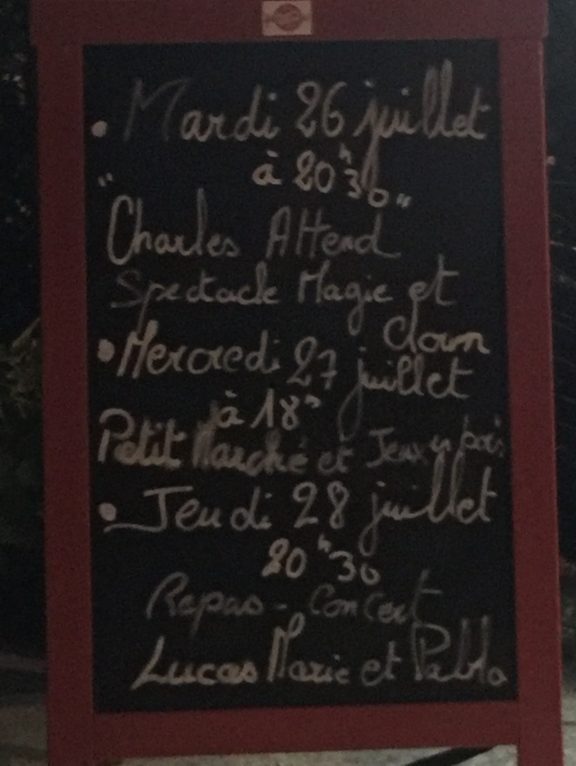 • Mardi 26 juillet
à 20h30
" Charles Attend "
Spectacle Magie et
clown
• Mercredi 27 juillet
à 18h
Petit Marché et Jeux en bois
• Jeudi 28 juillet
20h30
Repas - Concert
Lucas Marie et Pablo